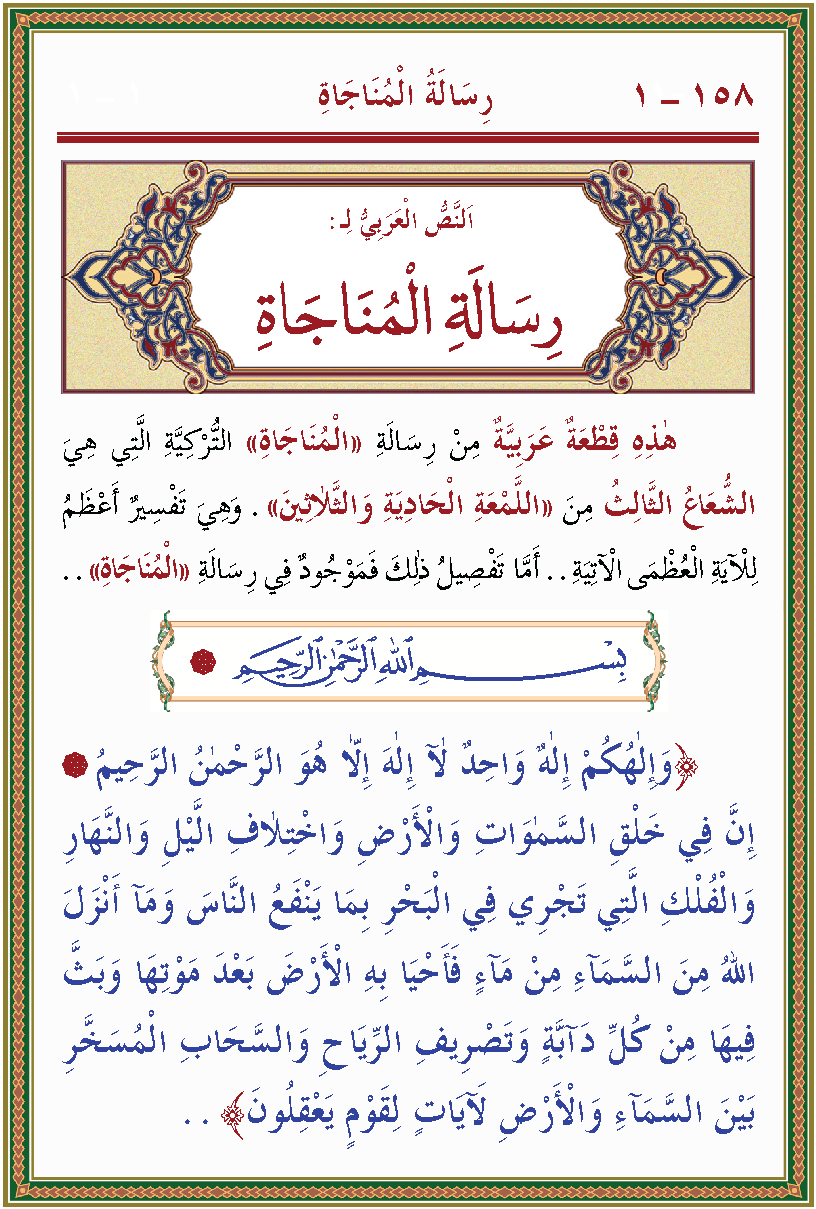 ١ – ١٥٨ رِسَالَةُ الْمُنَاجَاةِ
اَلنَّصُّ الْعَرَبِيُّ لِـ :
رِسَالَةِ الْمُنَاجَاةِ
هٰذِهِ قِطْعَةٌ عَرَبِيَّةٌ مِنْ رِسَالَةِ «الْمُنَاجَاةِ» التُّرْكِيَّةِ الَّتِي هِيَ
الشُّعَاعُ الثَّالِثُ مِنَ «اللَّمْعَةِ الْحَادِيَةِ وَالثَّلَاثِينَ» . وَهِيَ تَفْسِيرٌ أَعْظَمُ
لِلْآيَةِ الْعُظْمَى الْآتِيَةِ . . أَمَّا تَفْصِيلُ ذٰلِكَ فَمَوْجُودٌ فِي رِسَالَةِ «الْمُنَاجَاةِ» . .
بِسْمِ اللهِ الرَّحْمٰنِ الرَّحِيمِ
﴿وَإِلٰهُكُمْ إِلٰهٌ وَاحِدٌ لَٓا إِلٰهَ إِلَّا هُوَ الرَّحْمٰنُ الرَّحِيمُ
إِنَّ فِي خَلْقِ السَّمٰوَاتِ وَالْأَرْضِ وَاخْتِلَافِ الَّيْلِ وَالنَّهَارِ
وَالْفُلْكِ الَّتِي تَجْرِي فِي الْبَحْرِ بِمَا يَنْفَعُ النَّاسَ وَمَٓا أَنْزَلَ
اللهُ مِنَ السَّمَٓاءِ مِنْ مَٓاءٍ فَأَحْيَا بِهِ الْأَرْضَ بَعْدَ مَوْتِهَا وَبَثَّ
فِيهَا مِنْ كُلِّ دَٓابَّةٍ وَتَصْرِيفِ الرِّيَاحِ وَالسَّحَابِ الْمُسَخَّرِ
بَيْنَ السَّمَٓاءِ وَالْأَرْضِ لَآيَاتٍ لِقَوْمٍ يَعْقِلُونَ﴾ . .